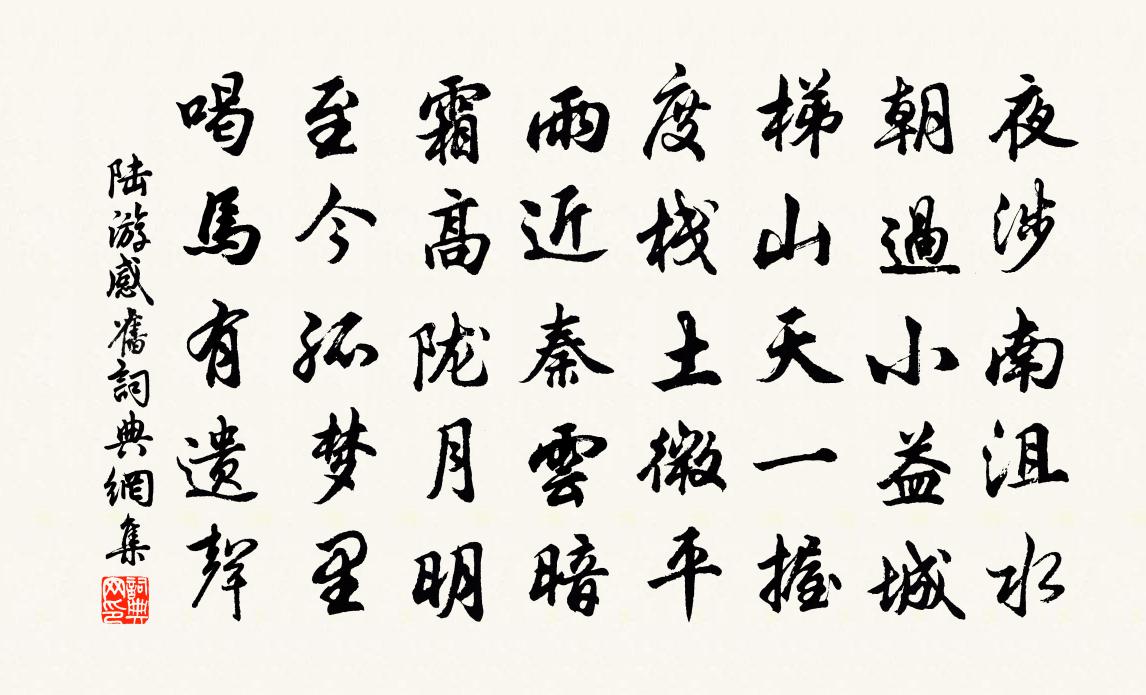 夜涉南沮水
朝過小益城
梯山天一握
度栈土微平
雨近秦雲暗
霜高陇月明
至今孤梦里
喝馬有遗聲
陆游感舊詞典網集
詞典網印